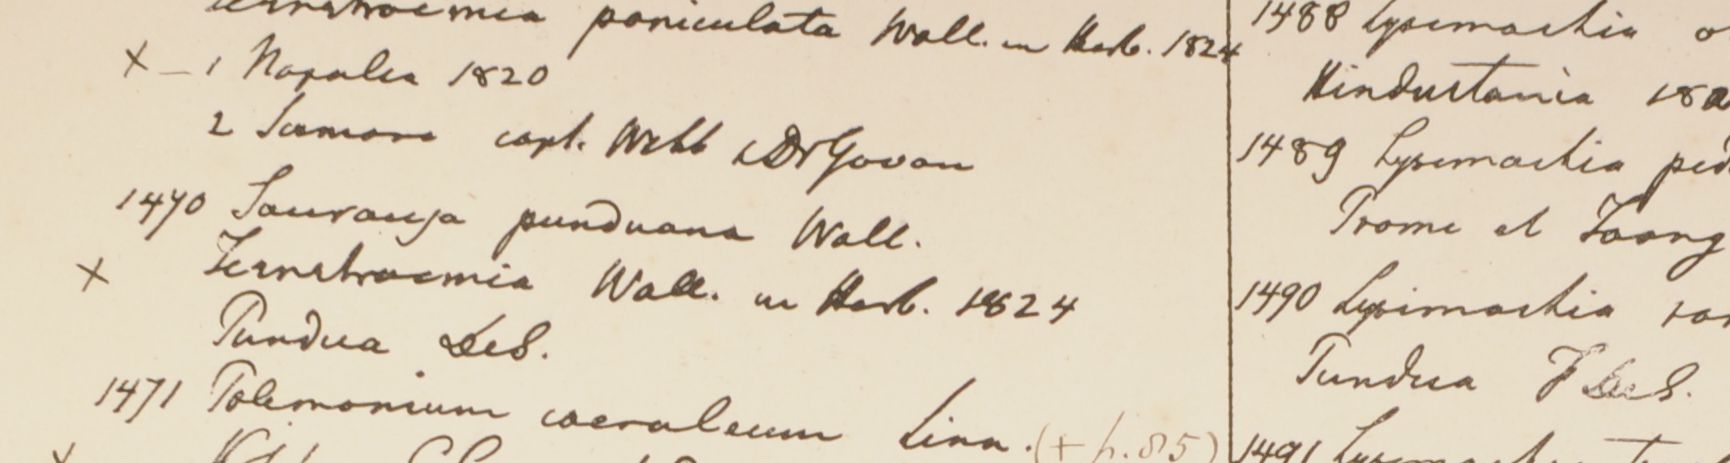 Ternstroemia paniculata Wall. in Herb. 1824
× – 1 Napalia 1820
2 Kamaon capt. Webb & Dr Govan
1470 Saurauja punduana Wall.
× Ternstroemia Wall. in Herb. 1824
Pundua DeS.
1471 Polemonium coeruleum Linn. (+ p. 85)
1488 Lysimachia
Hindustania 18
1489 Lysimachia
Prome et Taong
1490 Lysimachia
Pundua F DeS.
1491 Lysimachia